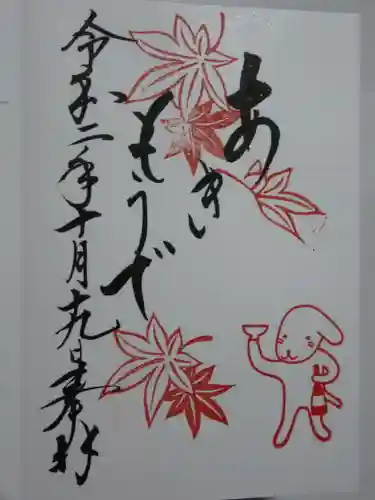 あきい
もうで
令和二年十月十九日奉拝